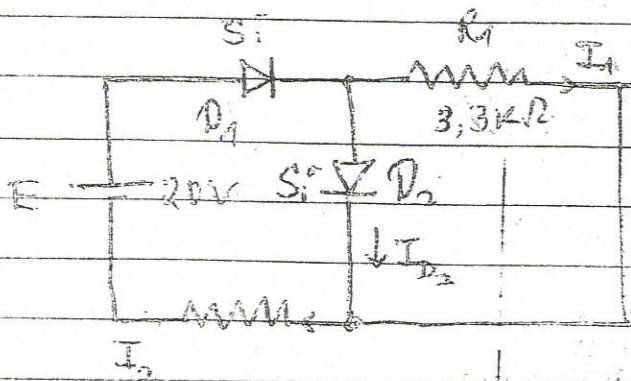 Si R1 I1
D1 3,3KΩ
E 20V Si D2
ID2
I2